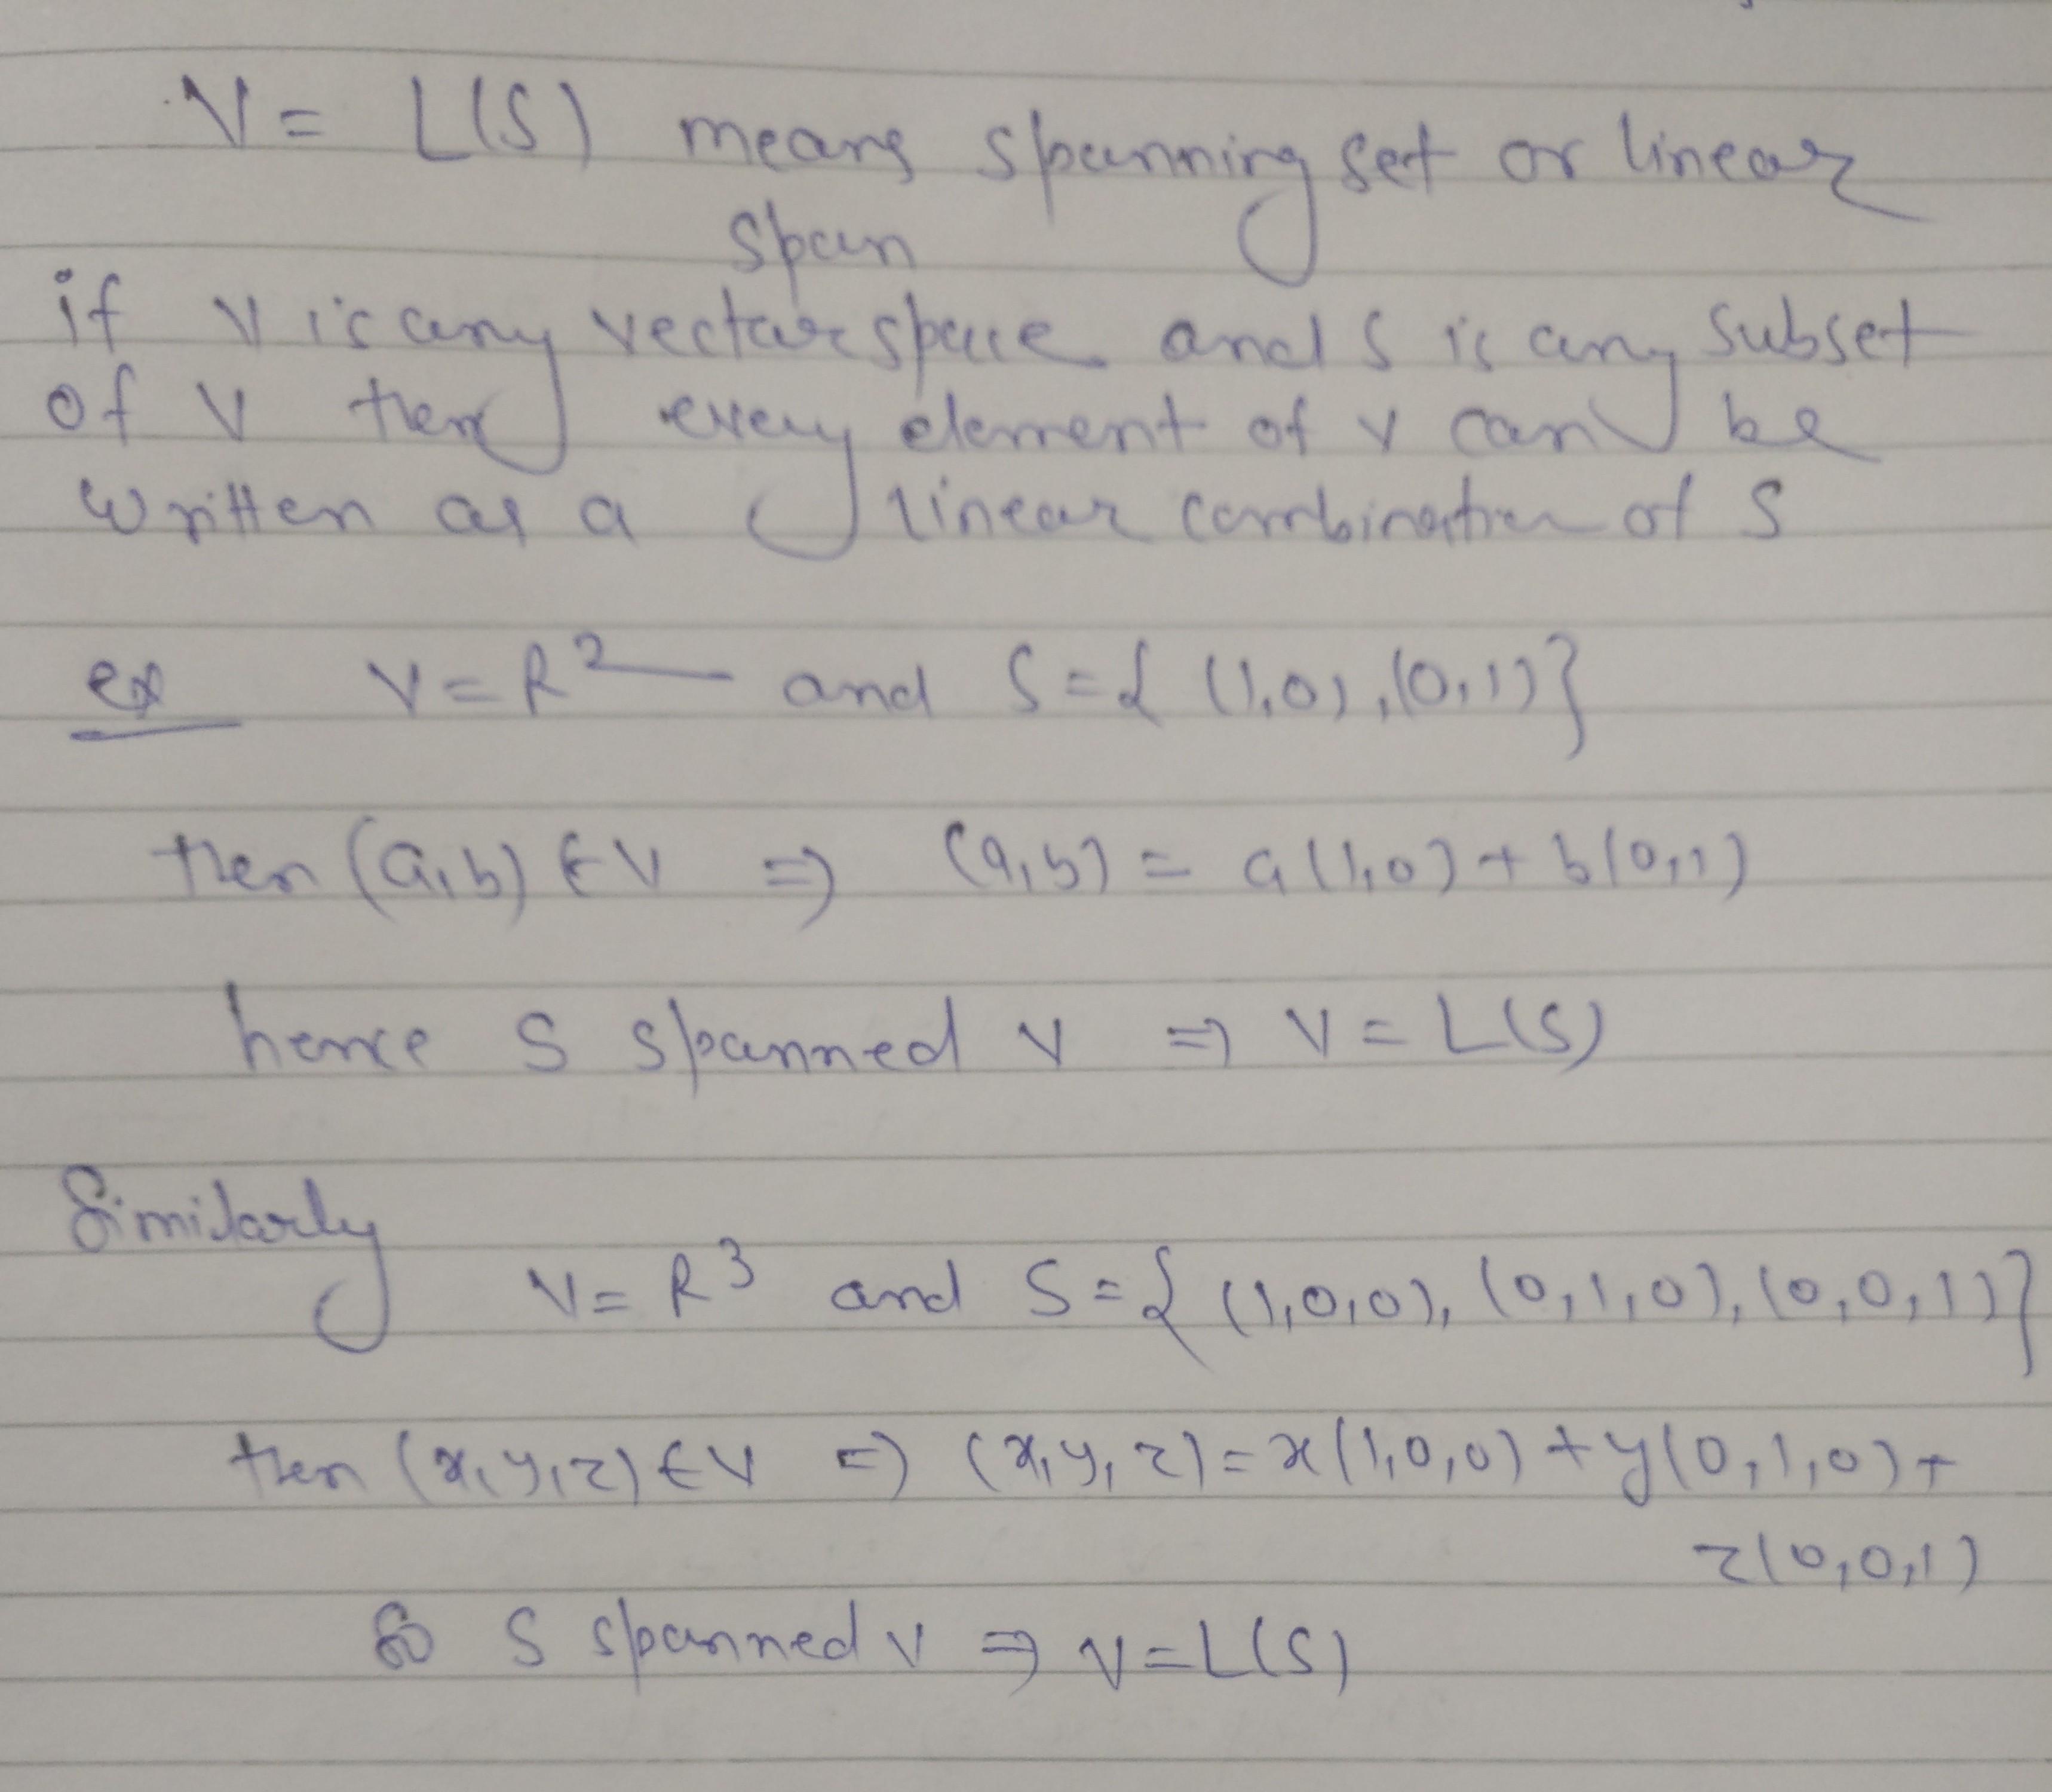 V = L(S) means spanning set or linear
span
if V is any vector space and S is any subset
of V then every element of V can be
written as a linear combination of S
ex V = R² and S = { (1,0), (0,1) }
then (a,b) ∈ V ⇒ (a,b) = a(1,0) + b(0,1)
hence S spanned V ⇒ V = L(S)
Similarly
V = R³ and S = { (1,0,0), (0,1,0), (0,0,1) }
then (x,y,z) ∈ V ⇒ (x,y,z) = x(1,0,0) + y(0,1,0) +
z(0,0,1)
So S spanned V ⇒ V = L(S)